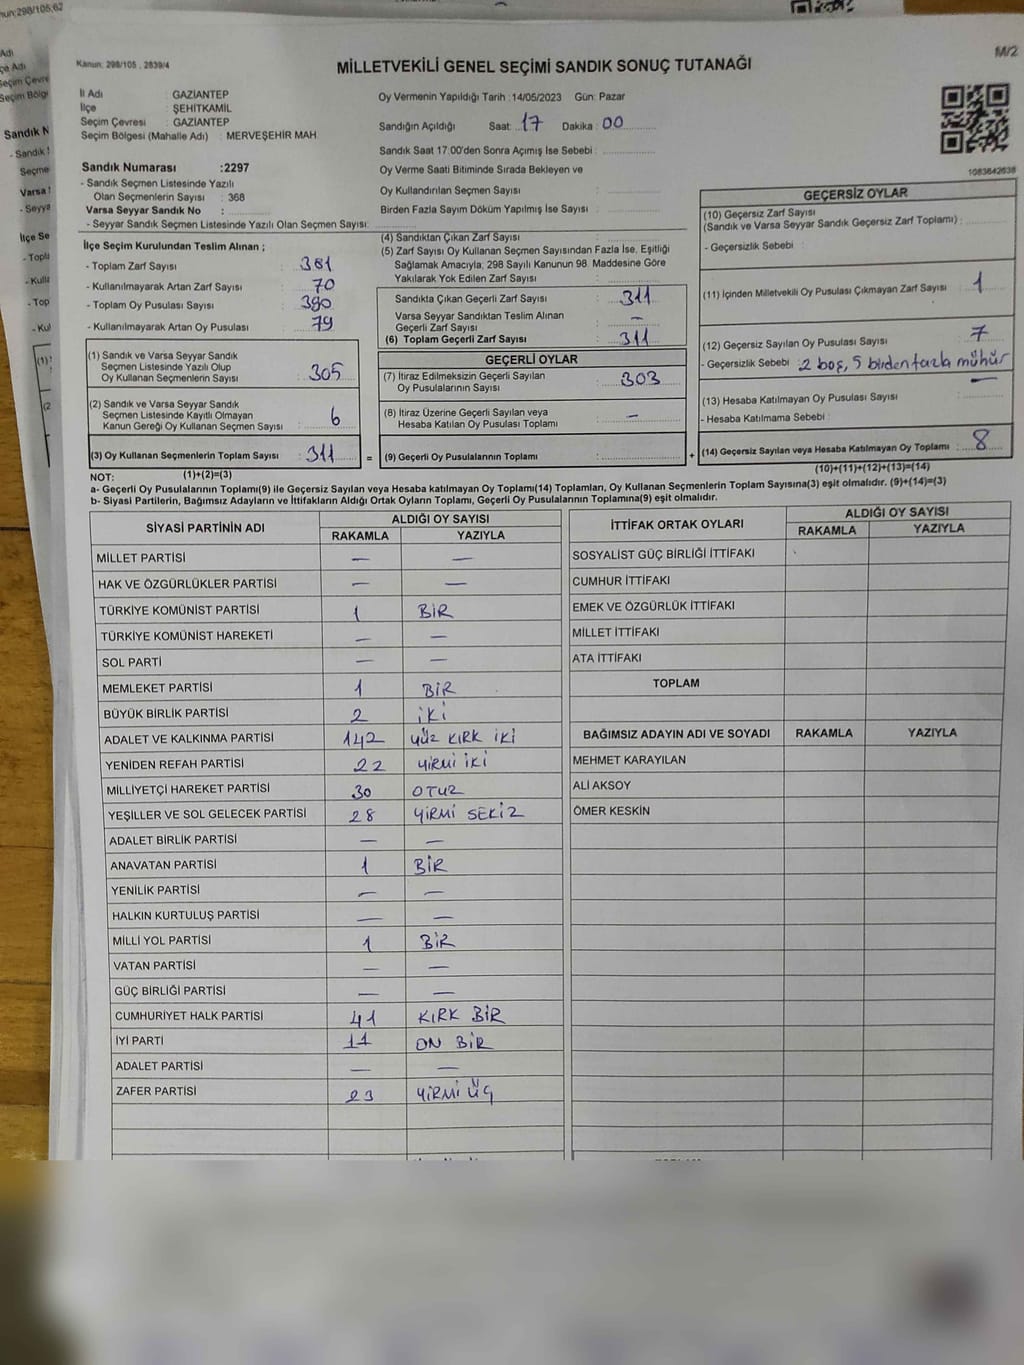 Kanun: 298/105 , 2839/4
M/2
MİLLETVEKİLİ GENEL SEÇİMİ SANDIK SONUÇ TUTANAĞI
İl Adı : GAZİANTEP
İlçe : ŞEHİTKAMİL
Seçim Çevresi : GAZİANTEP
Seçim Bölgesi (Mahalle Adı) : MERVEŞEHİR MAH.
Oy Vermenin Yapıldığı Tarih :14/05/2023 Gün: Pazar
Sandığın Açıldığı Saat: 17 Dakika : 00
Sandık Saat 17:00'den Sonra Açımış İse Sebebi :
Oy Verme Saati Bitiminde Sırada Bekleyen ve
Oy Kullandırılan Seçmen Sayısı :
Birden Fazla Sayım Döküm Yapılmış İse Sayısı :
1083642638
Sandık Numarası :2297
- Sandık Seçmen Listesinde Yazılı
Olan Seçmenlerin Sayısı : 368
Varsa Seyyar Sandık No :
- Seyyar Sandık Seçmen Listesinde Yazılı Olan Seçmen Sayısı:
İlçe Seçim Kurulundan Teslim Alınan ;
- Toplam Zarf Sayısı : 381
- Kullanılmayarak Artan Zarf Sayısı : 70
- Toplam Oy Pusulası Sayısı : 380
- Kullanılmayarak Artan Oy Pusulası : 79
(1) Sandık ve Varsa Seyyar Sandık
Seçmen Listesinde Yazılı Olup
Oy Kullanan Seçmenlerin Sayısı : 305
(2) Sandık ve Varsa Seyyar Sandık
Seçmen Listesinde Kayıtlı Olmayan
Kanun Gereği Oy Kullanan Seçmen Sayısı : 6
(3) Oy Kullanan Seçmenlerin Toplam Sayısı : 311
(1)+(2)=(3)
(4) Sandıktan Çıkan Zarf Sayısı :
(5) Zarf Sayısı Oy Kullanan Seçmen Sayısından Fazla İse, Eşitliği
Sağlamak Amacıyla, 298 Sayılı Kanunun 98. Maddesine Göre
Yakılarak Yok Edilen Zarf Sayısı :
Sandıkla Çıkan Geçerli Zarf Sayısı : 311
Varsa Seyyar Sandıktan Teslim Alınan
Geçerli Zarf Sayısı : –
(6) Toplam Geçerli Zarf Sayısı : 311
GEÇERLİ OYLAR
(7) İtiraz Edilmeksizin Geçerli Sayılan
Oy Pusulalarının Sayısı : 303
(8) İtiraz Üzerine Geçerli Sayılan veya
Hesaba Katılan Oy Pusulası Toplamı : –
= (9) Geçerli Oy Pusulalarının Toplamı : +
GEÇERSİZ OYLAR
(10) Geçersiz Zarf Sayısı
(Sandık ve Varsa Seyyar Sandık Geçersiz Zarf Toplamı) :
- Geçersizlik Sebebi :
(11) İçinden Milletvekili Oy Pusulası Çıkmayan Zarf Sayısı : 1
(12) Geçersiz Sayılan Oy Pusulası Sayısı : 7
- Geçersizlik Sebebi : 2 boş, 5 birden fazla mühür
(13) Hesaba Katılmayan Oy Pusulası Sayısı : –
- Hesaba Katılmama Sebebi :
(14) Geçersiz Sayılan veya Hesaba Katılmayan Oy Toplamı : 8
(10)+(11)+(12)+(13)=(14)
NOT:
a- Geçerli Oy Pusulalarının Toplamı(9) ile Geçersiz Sayılan veya Hesaba katılmayan Oy Toplamı(14) Toplamları, Oy Kullanan Seçmenlerin Toplam Sayısına(3) eşit olmalıdır. (9)+(14)=(3)
b- Siyasi Partilerin, Bağımsız Adayların ve İttifakların Aldığı Ortak Oyların Toplamı, Geçerli Oy Pusulalarının Toplamına(9) eşit olmalıdır.
SİYASİ PARTİNİN ADI ALDIĞI OY SAYISI
RAKAMLA YAZIYLA
MİLLET PARTİSİ — —
HAK VE ÖZGÜRLÜKLER PARTİSİ — —
TÜRKİYE KOMÜNİST PARTİSİ 1 BİR
TÜRKİYE KOMÜNİST HAREKETİ — —
SOL PARTİ — —
MEMLEKET PARTİSİ 1 BİR
BÜYÜK BİRLİK PARTİSİ 2 İKİ
ADALET VE KALKINMA PARTİSİ 142 YÜZ KIRK İKİ
YENİDEN REFAH PARTİSİ 22 YİRMİ İKİ
MİLLİYETÇİ HAREKET PARTİSİ 30 OTUZ
YEŞİLLER VE SOL GELECEK PARTİSİ 28 YİRMİ SEKİZ
ADALET BİRLİK PARTİSİ — —
ANAVATAN PARTİSİ 1 BİR
YENİLİK PARTİSİ — —
HALKIN KURTULUŞ PARTİSİ — —
MİLLİ YOL PARTİSİ 1 BİR
VATAN PARTİSİ — —
GÜÇ BİRLİĞİ PARTİSİ — —
CUMHURİYET HALK PARTİSİ 41 KIRK BİR
İYİ PARTİ 11 ON BİR
ADALET PARTİSİ — —
ZAFER PARTİSİ 23 YİRMİ ÜÇ
İTTİFAK ORTAK OYLARI ALDIĞI OY SAYISI
RAKAMLA YAZIYLA
SOSYALİST GÜÇ BİRLİĞİ İTTİFAKI
CUMHUR İTTİFAKI
EMEK VE ÖZGÜRLÜK İTTİFAKI
MİLLET İTTİFAKI
ATA İTTİFAKI
TOPLAM
BAĞIMSIZ ADAYIN ADI VE SOYADI RAKAMLA YAZIYLA
MEHMET KARAYILAN
ALİ AKSOY
ÖMER KESKİN